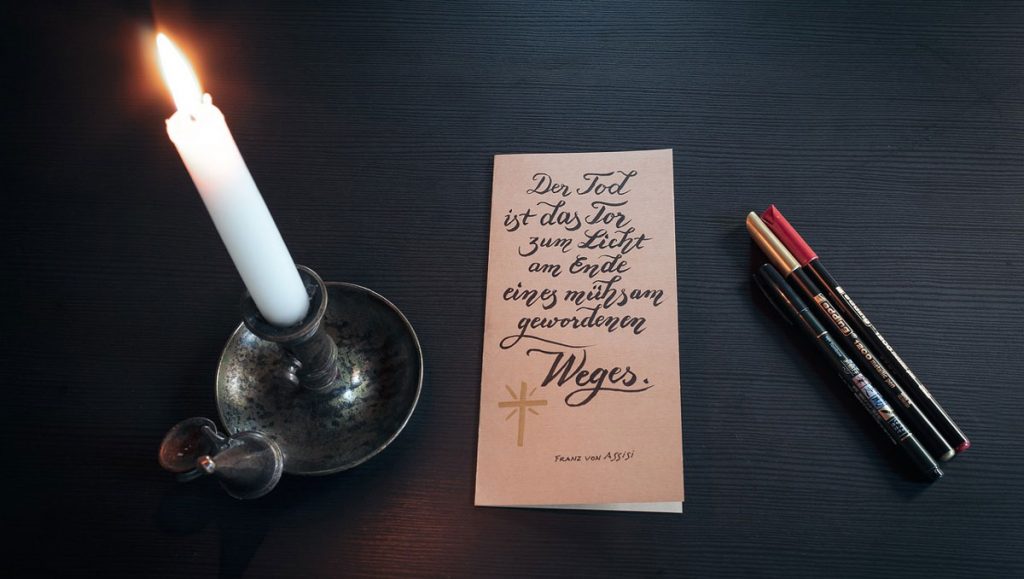 Der Tod
ist das Tor
zum Licht
am Ende
eines mühsam
gewordenen
Weges.
Franz von Assisi
edding 1200